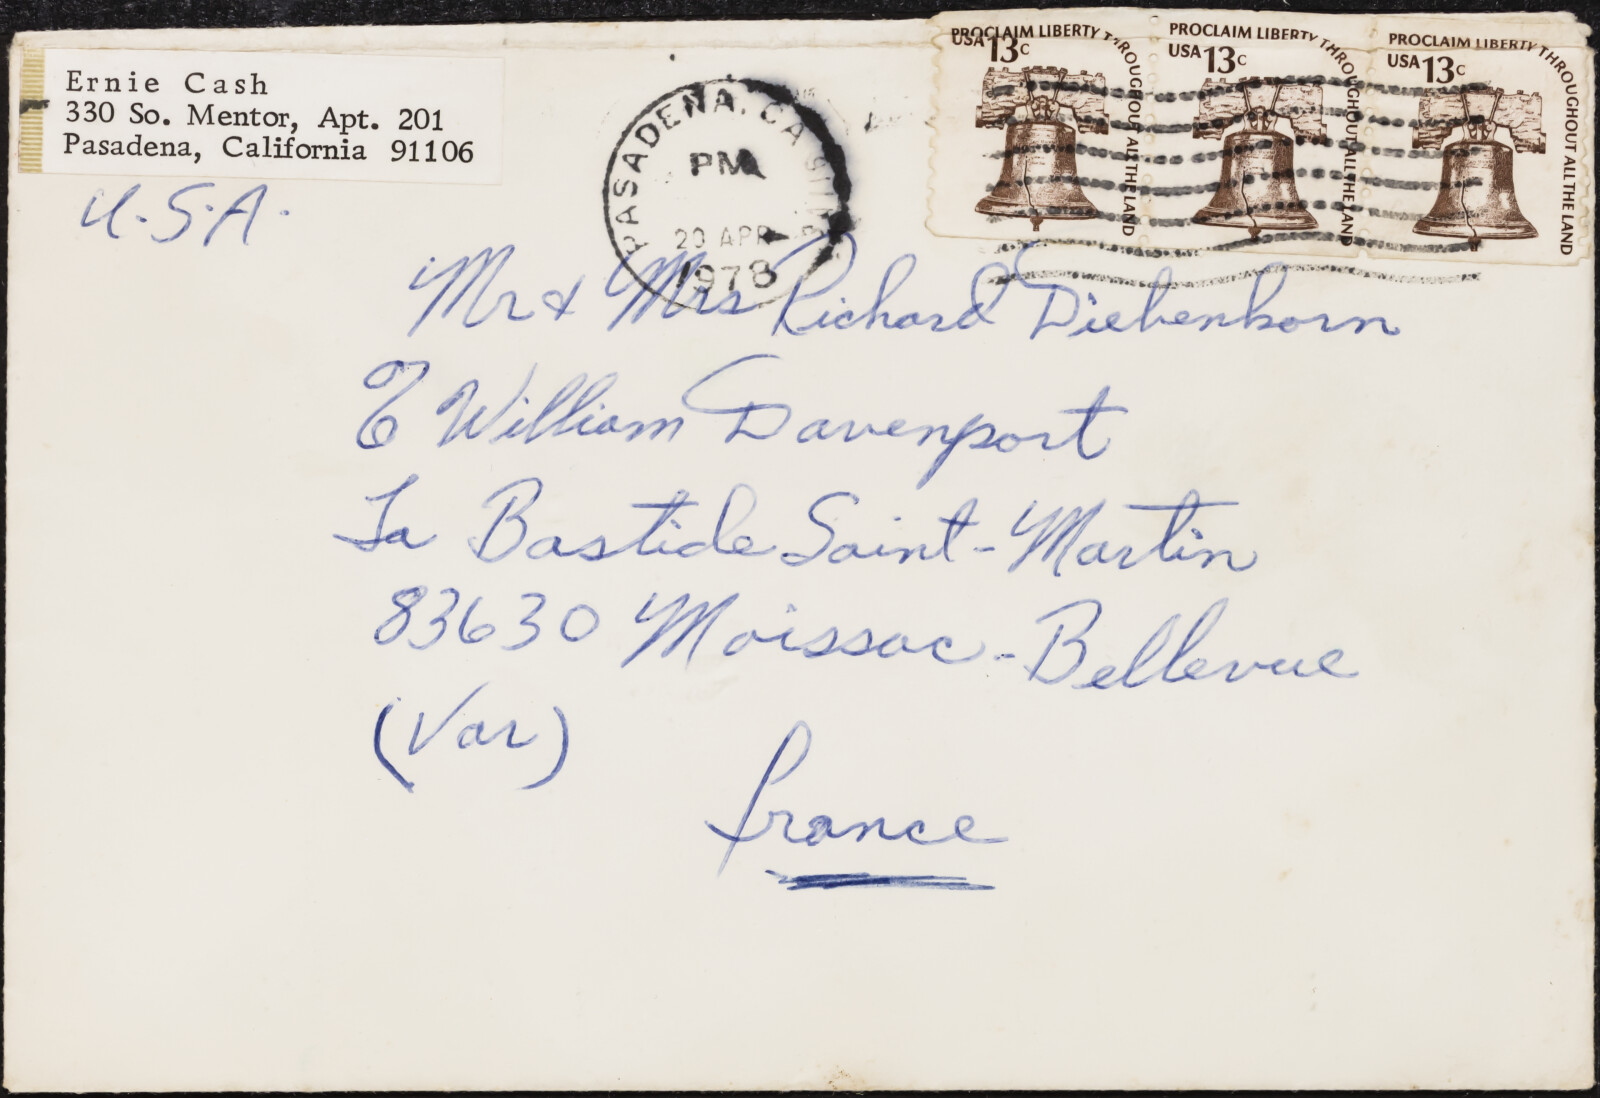 Ernie Cash
330 So. Mentor, Apt. 201
Pasadena, California 91106
U.S.A.
PASADENA, CA
PM
20 APR
1978
PROCLAIM LIBERTY THROUGHOUT ALL THE LAND
USA 13c
PROCLAIM LIBERTY THROUGHOUT ALL THE LAND
USA 13c
PROCLAIM LIBERTY THROUGHOUT ALL THE LAND
USA 13c
Mr & Mrs Richard Diebenkorn
℅ William Davenport
La Bastide Saint-Martin
83630 Moissac-Bellevue
(Var)
France